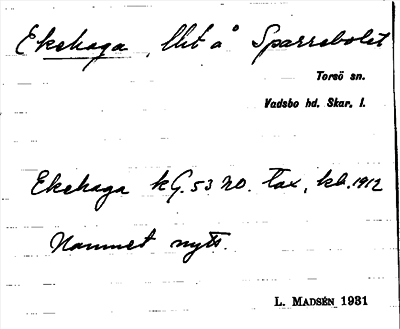 Ekehaga, lht å Sparrebolet
Torsö sn.
Vadsbo hd. Skar. l.
Ekehaga kG. 53 NO. tax, kb. 1912
Namnet nytt.
L. MADSÉN 1931